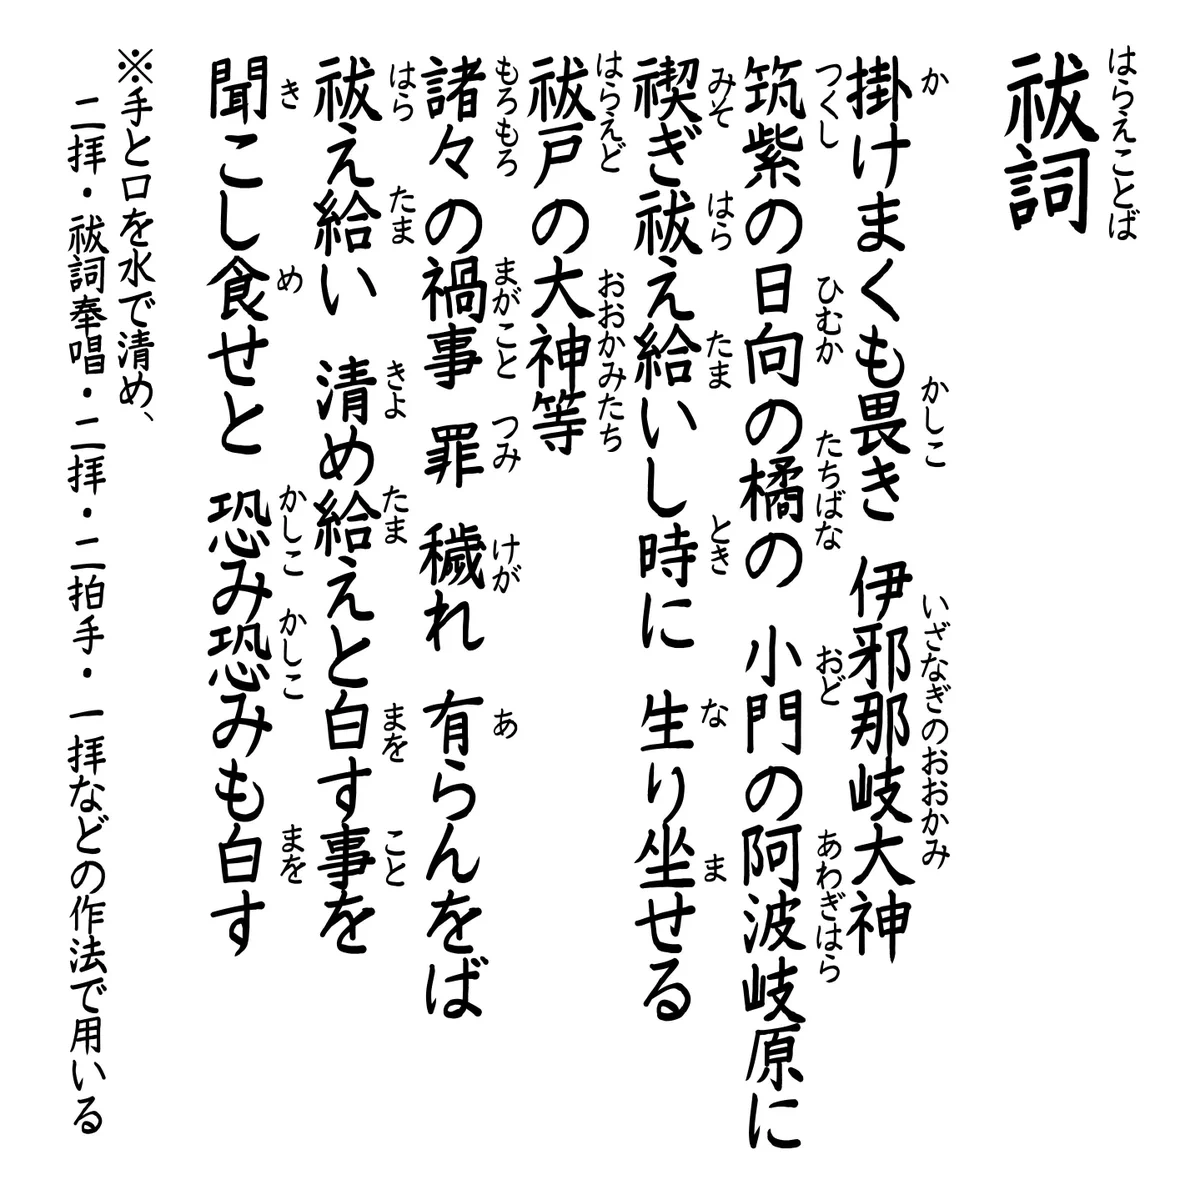 祓詞
はらえことば
掛けまくも畏き 伊邪那岐大神
か かしこ いざなぎのおおかみ
筑紫の日向の橘の 小門の阿波岐原に
つくし ひむか たちばな おど あわぎはら
禊ぎ祓え給いし時に 生り坐せる
みそ はら たま とき な ま
祓戸の大神等
はらえど おおかみたち
諸々の禍事 罪 穢れ 有らんをば
もろもろ まがこと つみ けが あ
祓え給い 清め給えと白す事を
はら たま きよ たま まを こと
聞こし食せと 恐み恐みも白す
き め かしこ かしこ まを
※手と口を水で清め、
二拝・祓詞奉唱・二拝・二拍手・一拝などの作法で用いる